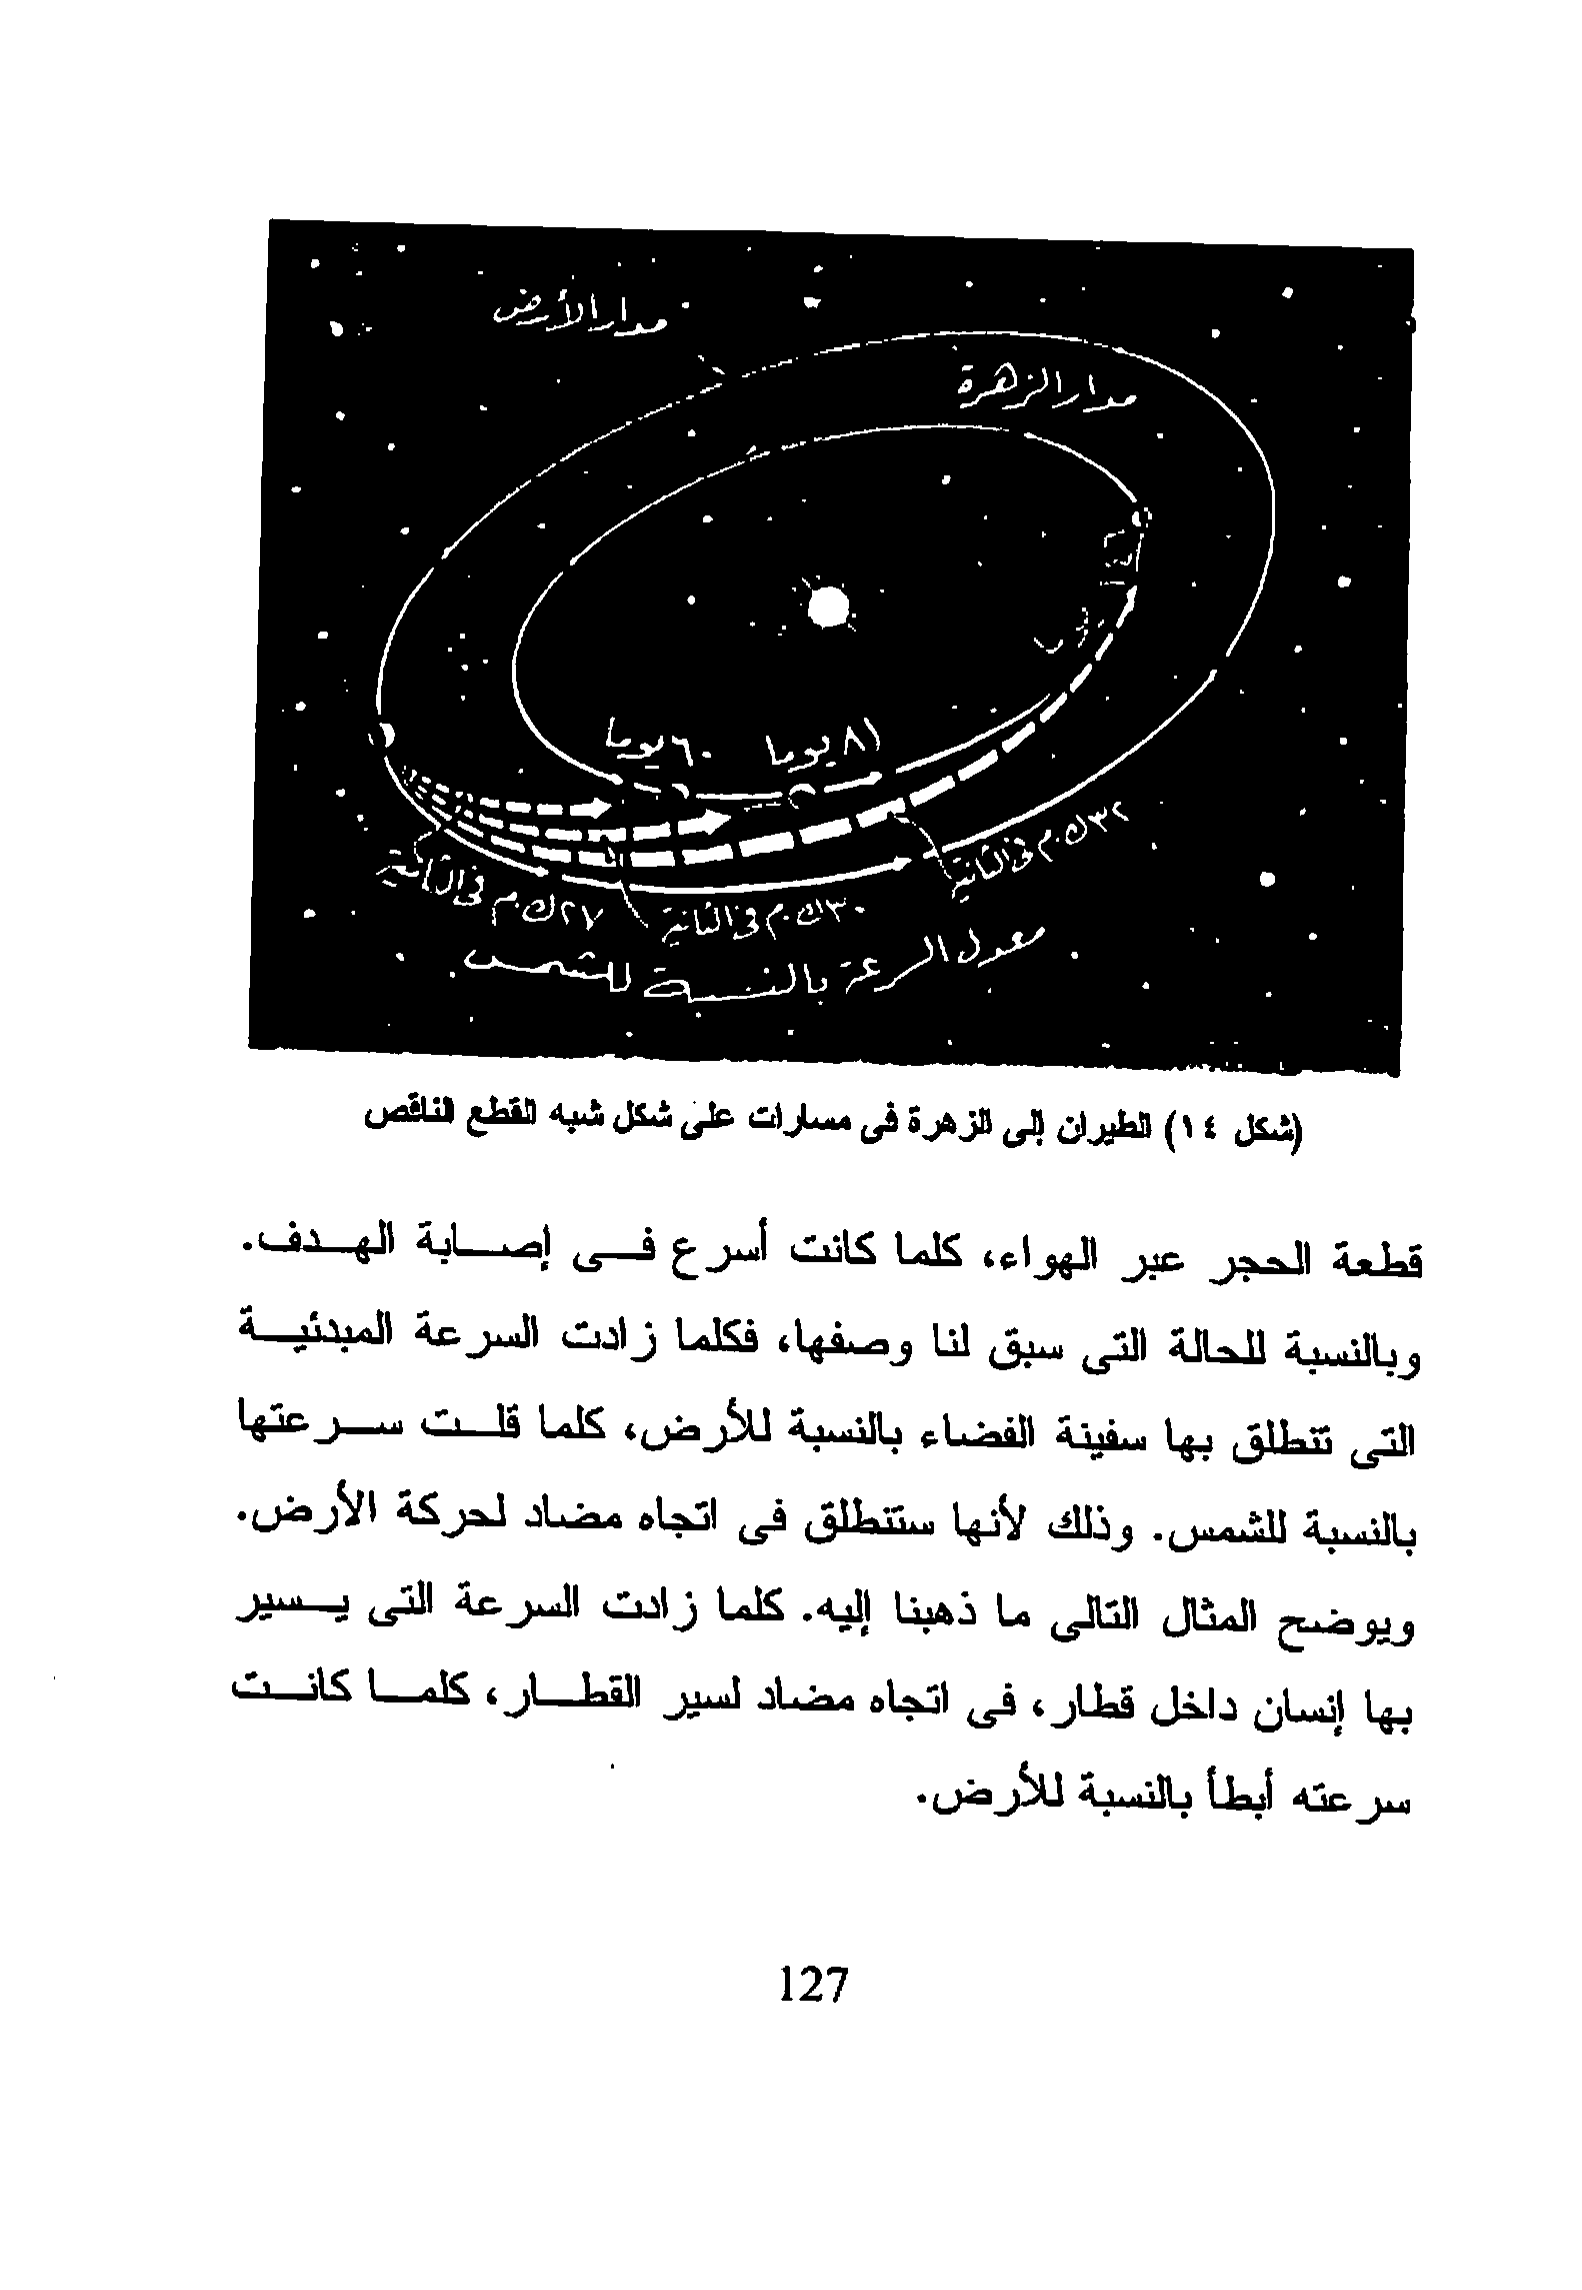 مدار الأرض
مدار الزهرة
١٤٦
٦٠ يوما
٨١ يوما
٢٧ ك.م فى الثانية
٣٠ ك.م فى الثانية
٣٢ ك.م فى الثانية
معدل السرعة بالنسبة للشمس
(شكل ١٤) الطيران إلى الزهرة فى مسارات على شكل شبه القطع الناقص
قطعة الحجر عبر الهواء، كلما كانت أسرع فى إصابة الهدف.
وبالنسبة للحالة التى سبق لنا وصفها، فكلما زادت السرعة المبدئية
التى تنطلق بها سفينة الفضاء بالنسبة للأرض، كلما قلت سرعتها
بالنسبة للشمس. وذلك لأنها ستنطلق فى اتجاه مضاد لحركة الأرض.
ويوضح المثال التالى ما ذهبنا إليه. كلما زادت السرعة التى يسير
بها إنسان داخل قطار، فى اتجاه مضاد لسير القطار، كلما كانت
سرعته أبطأ بالنسبة للأرض.
127